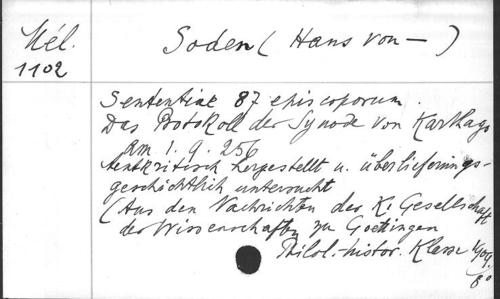 Mél.
1102
Soden (Hans von —)
Sententiae 87 episcoporum.
Das Protokoll der Synode von Karthago
Am 1. 9. 256
textkritisch hergestellt u. überlieferungs-
geschichtlich untersucht
(Aus den Nachrichten der K. Gesellschaft
der Wissenschaften zu Goettingen
Philol.-histor. Klasse 1909.
8°